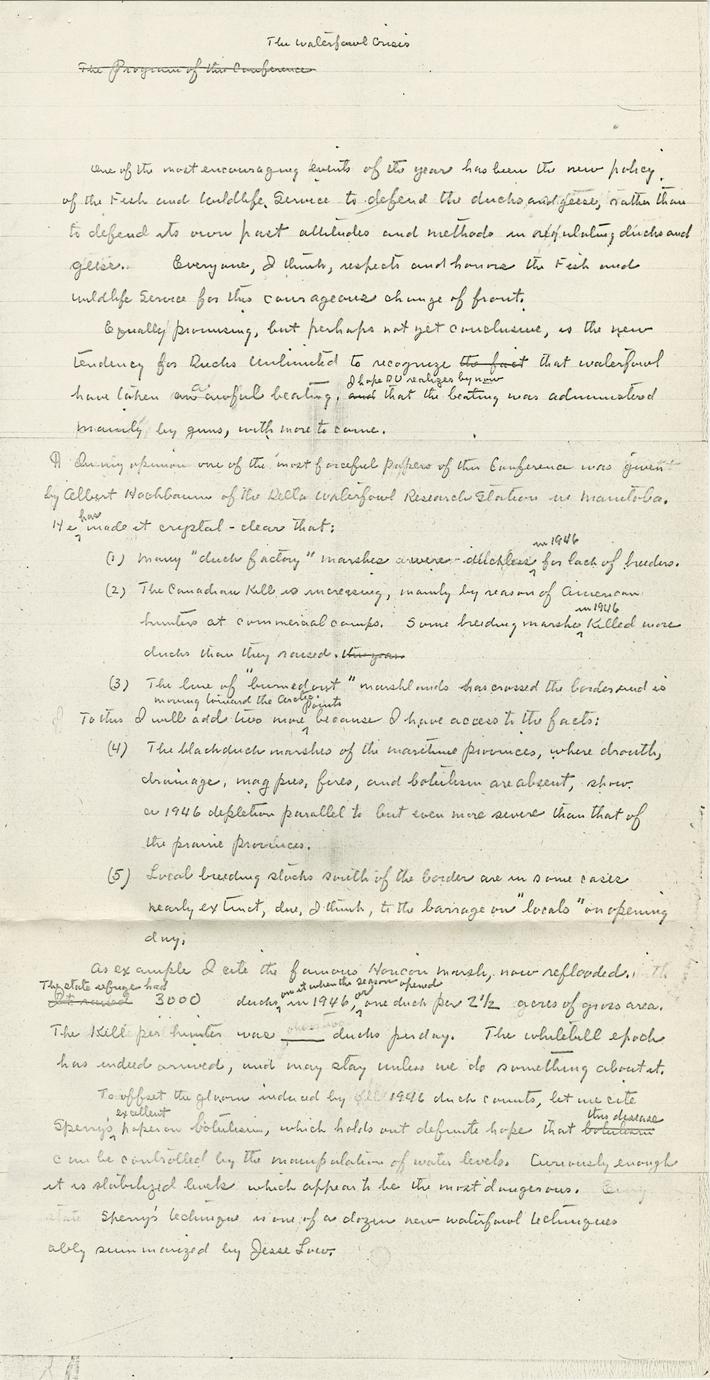 The Waterfowl Crisis
The Program of this Conference
One of the most encouraging events of the year has been the new policy
of the Fish and Wildlife Service to defend the ducks and geese, rather than
to defend its own past attitudes and methods in regulating ducks and
geese. Everyone, I think, respects and honors the Fish and
Wildlife Service for this courageous change of front.
Equally promising, but perhaps not yet conclusive, is the new
tendency for Ducks Unlimited to recognize the fact that waterfowl
I hope DU realizes by now
have taken an awful beating, and that the beating was administered
mainly by guns, with more to come.
In my opinion one of the most forceful papers of this Conference was given
by Albert Hochbaum of the Delta Waterfowl Research Station in Manitoba.
has
He made it crystal-clear that:
in 1946
(1) Many "duck factory" marshes were duckless for lack of breeders.
(2) The Canadian kill is increasing, mainly by reason of American
in 1946
hunters at commercial camps. Some breeding marshes killed more
ducks than they raised. this year
(3) The line of "burned out" marshlands has crossed the border and is
moving toward the Arctic
points
To this I will add two more because I have access to the facts:
(4) The blackduck marshes of the maritime provinces, where drouth,
drainage, magpies, fires, and botulism are absent, show
a 1946 depletion parallel to but even more severe than that of
the prairie provinces.
(5) Local breeding stocks south of the border are in some cases
nearly extinct, due, I think, to the barrage on "locals" on opening
day.
As example I cite the famous Horicon marsh, now reflooded.
The state refuge had
on it when the season opened
It raised 3000 ducks in 1946, or one duck per 2½ acres of gross area.
The kill per hunter was ____ ducks per day. The whitebill epoch
has indeed arrived, and may stay unless we do something about it.
To offset the gloom induced by 1946 duck counts, let me cite
excellent
this disease
Sperry's paper on botulism, which holds out definite hope that botulism
can be controlled by the manipulation of water levels. Curiously enough
it is stabilized levels which appear to be the most dangerous.
Sperry's technique is one of a dozen new waterfowl techniques
ably summarized by Jesse Low.